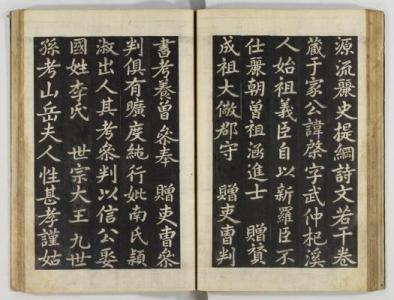 源流麗史提綱詩文若干卷
藏于家公諱棨字武仲杞溪
人始祖義臣自以新羅臣不
仕麗朝曾祖涵進士　贈贊
成祖大儆郡守　贈吏曹判
書考養曾參奉　贈吏曹參
判俱有曠度純行妣南氏穎
淑出人其考參判以信公娶
國姓李氏　世宗大王九世
孫考山岳夫人性甚孝謹姑